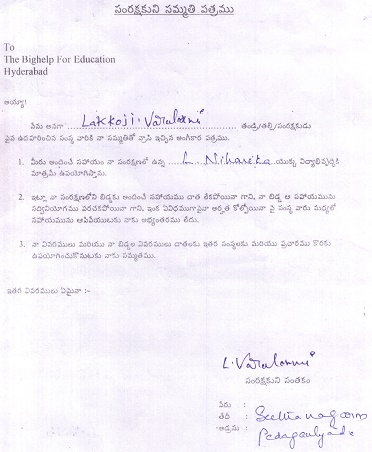 సంరక్షకుని సమ్మతి పత్రము
To
The Bighelp For Education
Hyderabad
అయ్యా!
నేను అనగా Lakkoji. Varalaxmi తండ్రి/తల్లి/సంరక్షకుడు
పైన ఉదహరించిన సంస్థ వారికి నా సమ్మతితో వ్రాసి ఇచ్చిన అంగీకార పత్రము.
1. మీరు అందించే సహాయం నా సంరక్షణలో ఉన్న L. Niharika యొక్క విద్యాభివృద్ధికి
మాత్రమే ఉపయోగిస్తాను.
2. ఇట్లా నా సంరక్షణలోని బిడ్డకు అందించే సహాయము చాత లేకపోయినా గాని, నా బిడ్డ ఆ సహాయమును
సద్వినియోగము పరచకపోయినా గాని, ఇంక ఏవిధముగానైనా అర్హత కోల్పోయినా పై సంస్థ వారు మధ్యలో
సహాయమును ఆపివేయుటకు నాకు అభ్యంతరము లేదు.
3. నా వివరములు మరియు నా బిడ్డల వివరములు దాతలకు ఇతర సంస్థలకు మరియు ప్రచారము కొరకు
ఉపయోగించుకొనుటకు నాకు సమ్మతము.
ఇతర వివరములు ఏమైనా :-
L. Varalaxmi
సంరక్షకుని సంతకం
పేరు :
తేది : Seethanagaram
అడ్రసు :